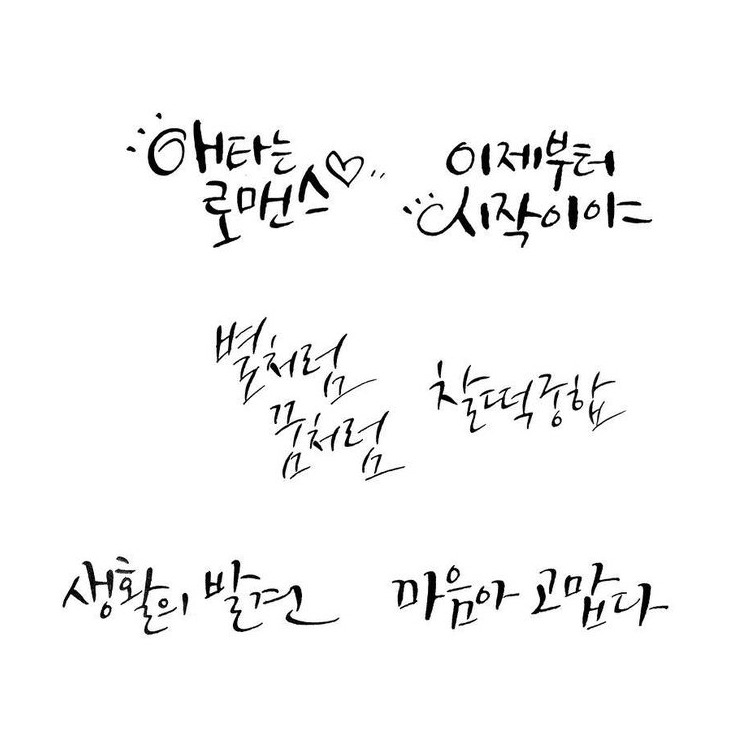 애타는
로맨스
이제부터
시작이야
별처럼
꿈처럼
찰떡궁합
생활의 발견
마음아 고맙다